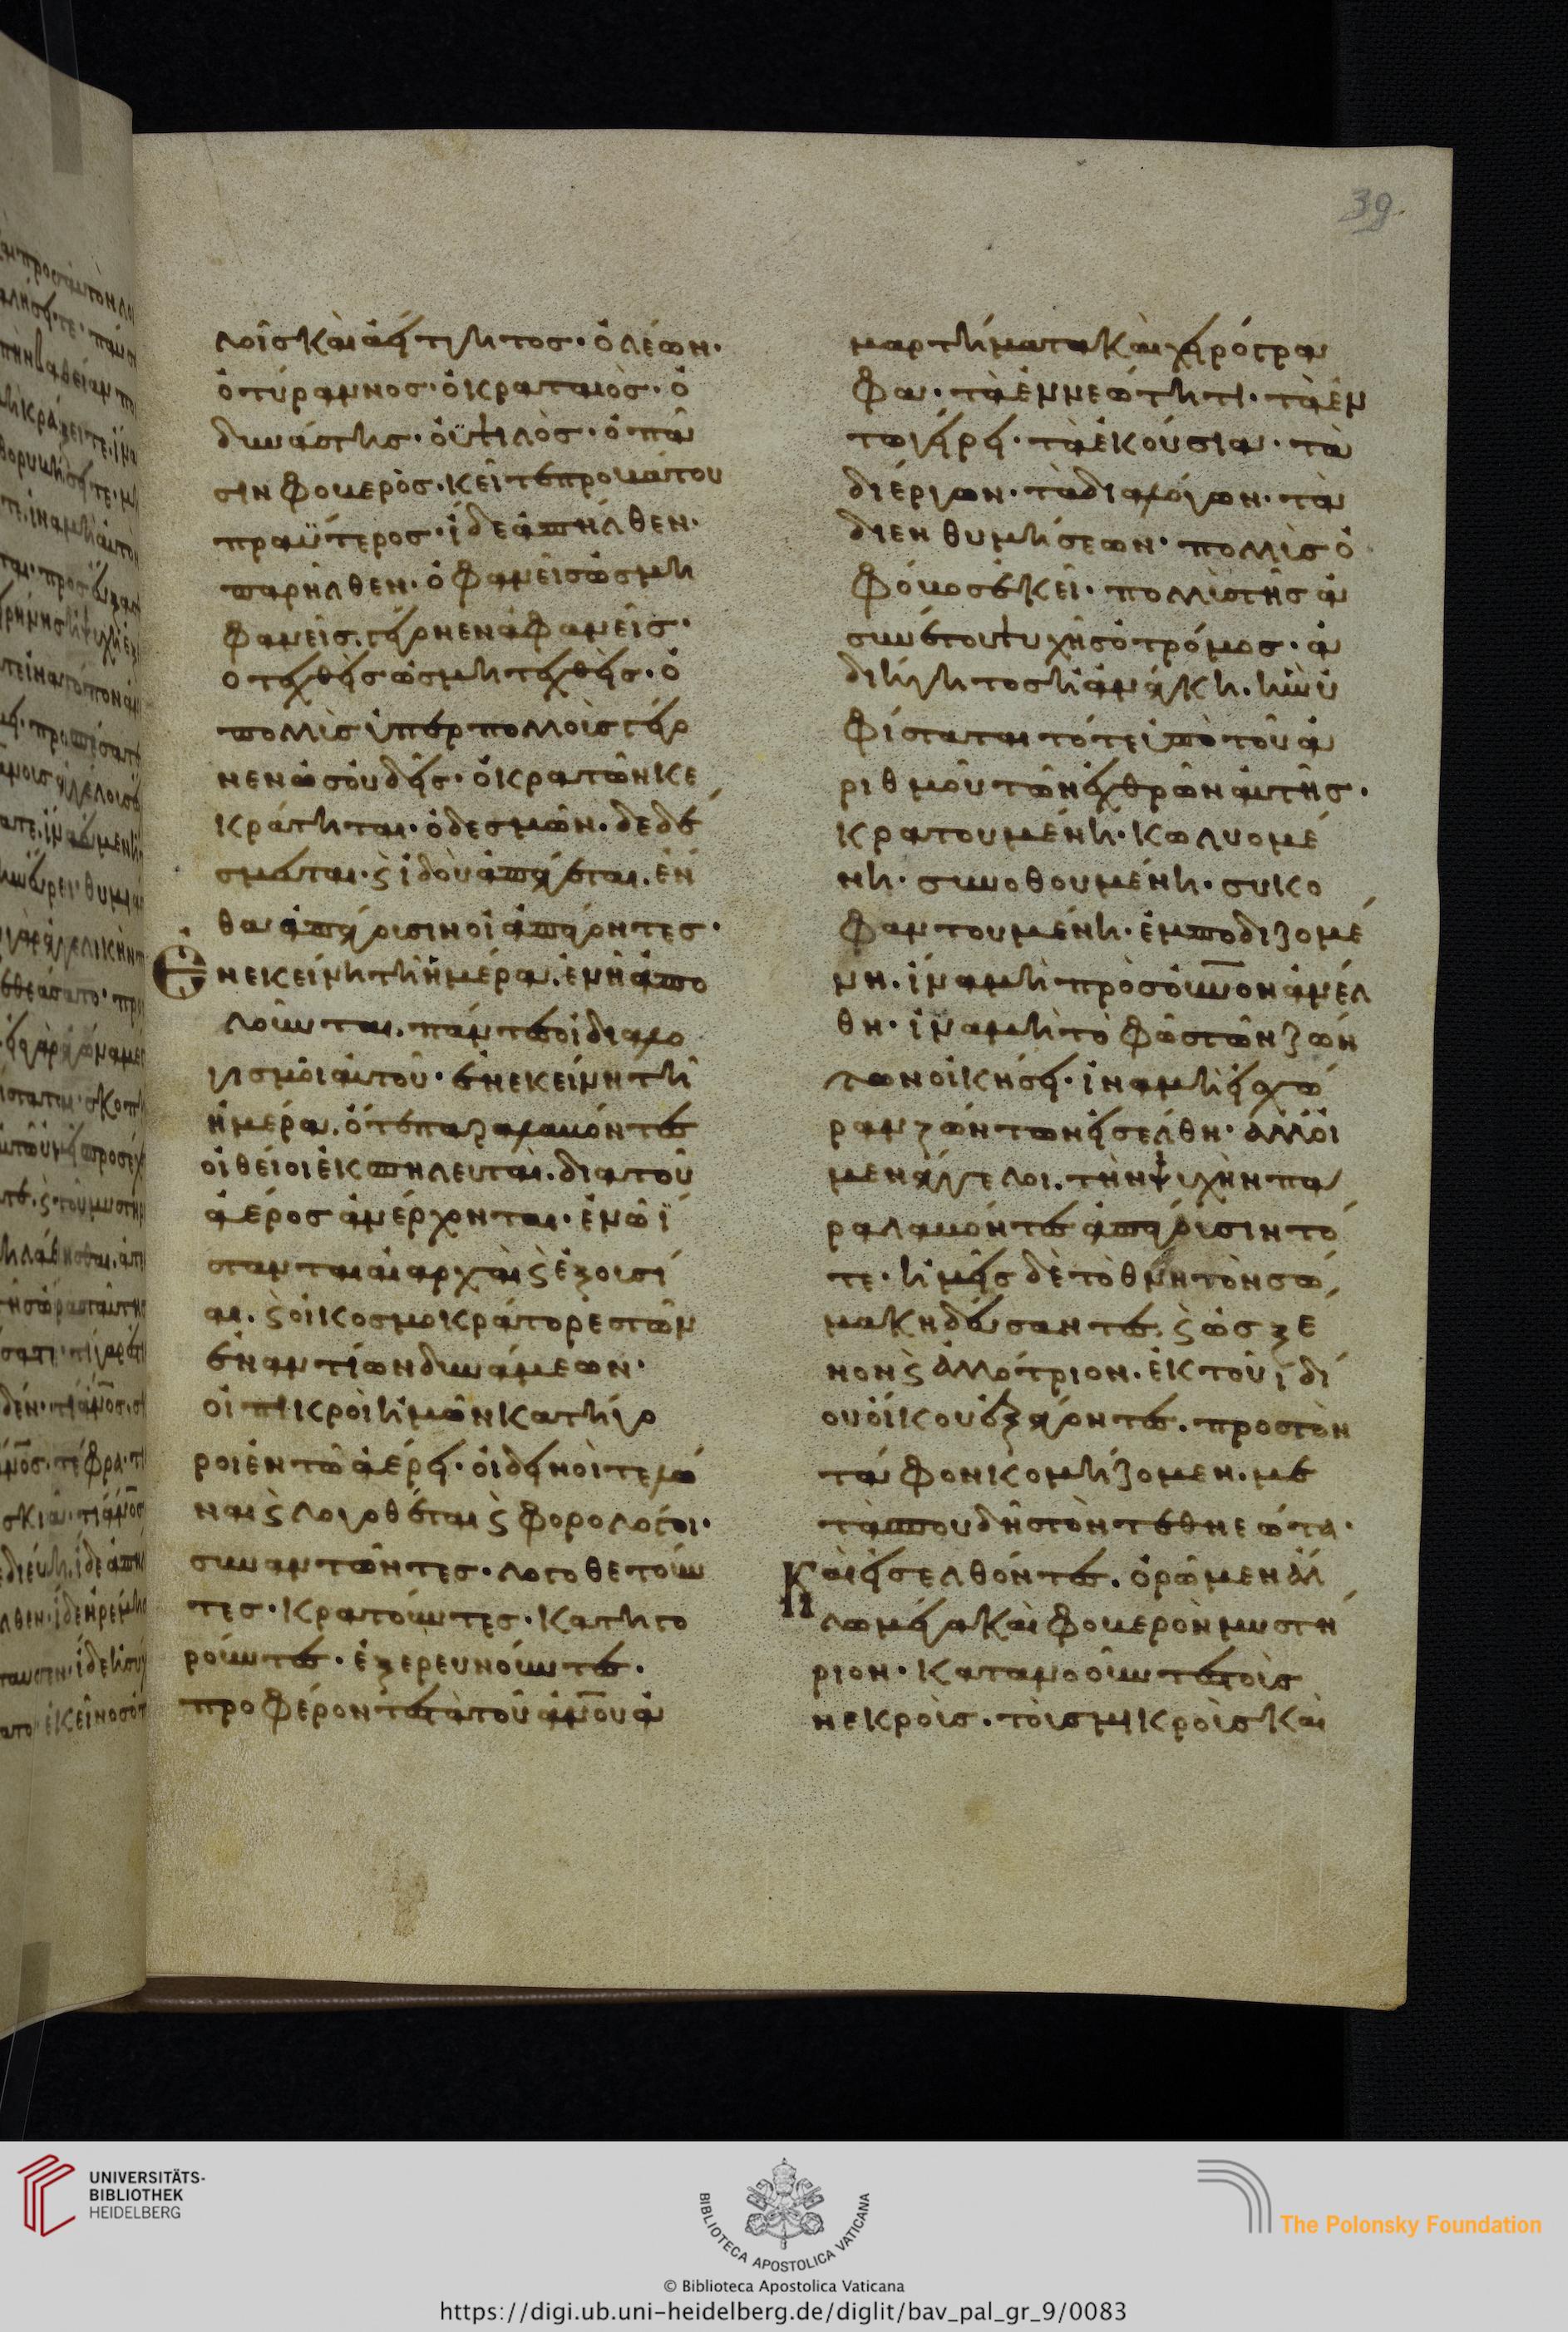 39
λοῖς καὶ ἀήττητος· ὁ λέων·
ὁ τύραννος· ὁ κραταιὸς· ὁ
δυνάστης· ὁ ὑψηλὸς· ὁ πᾶ
σιν φοβερὸς· κεῖται προβάτου
πραΰτερος· ἴδε ἀπῆλθεν·
παρῆλθεν· ὁ φανεὶς ὡς μὴ
φανεὶς. γέγονεν ἀφανεῖς·
ὁ ταχθεὶς ὡς μὴ ταχθεὶς· ὁ
πολλὶς ὑπὲρ πολλοῖς γέγο
νεν ὡς οὐδεὶς· ὁ κρατῶν κε
κράτηται· ὁ δεσμῶν· δεδέ
σμεται· ϛ ἰδοὺ ἀπάγεται. ἐν
θα ἀπάγουσιν οἱ ἀπάγοντες·
Ἐν ἐκείνη τῆ ἡμέρα. ἐν ἧ ἀπο
λοῦνται. πάντες οἱ διαλο
γισμοὶ αὐτοῦ· ἐν ἐκείνη τῆ
ἡμέρα. ὅτε παραλαβόντες
οἱ θεῖοι ἐκσπηλευταὶ. δια τοῦ
ἀέρος ἀνέρχονται· ἐν ῶ ἵ
σταντai αἱ αρχαὶ ϛ ἐξουσί
αι. ϛ οἱ κοσμοκράτορες τῶν
ἐναντίων δυνάμεων·
οἱ πικροὶ ἡμῶν κατήγο
ροι ἐν τῶ ἀέρει· οἱ δεινοὶ τελῶ
ναι ϛ λογοθέται ϛ φορολόγοι·
συναντῶντες· λογοθετοῦν
τες· κρατοῦντες· κατηγο
ροῦντες· ἐξερευνοῦντες·
προφέροντες τὰ τοῦ ἀν͞ου ἁ
μαρτήματα καὶ χειρόγρα
φα· τὰ ἐν νεώτητι· τὰ ἐν
τω γήρει· τὰ ἑκούσια· τὰ
δι έργων· τὰ δια λόγων· τὰ
δι ενθυμήσεων· πολλὶς ὁ
φόβος ἐκεῖ· πολλὶς τῆς ἀ
συνέστου ψυχῆς ὁ τρόμος· ἀ
διήγητος ἡ ἀνάγκη. ἣν ὑ
φίσταται τότε ὑπὸ τοῦ ἀ
ριθμοῦ τῶν ἐχθρῶν αὐτῆς·
κρατουμένη· κωλυομέ
νη· συνοθουμένη· συκο
φαντουμένη· ἐμποδιζομέ
νη. ἵνα μὴ πρὸς οὐν͞ον ἀνέλ
θη· ἵνα μὴ τὸ φῶς τῶν ζών
των οἰκήσει· ἵνα μὴ εἰς χώ
ραν ζώντων εἰσέλθη· ἀλλ οἱ
μεν ἄγγελοι. τὴν ψυχὴν πα
ραλαβόντες ἀπάγουσιν τό
τε· ἡμεῖς δὲ τὸ θνητὸν σῶ
μα κηδεύσαντες. ϛ ὡς ξέ
νον ϛ ἀλλότριον· ἐκ τοῦ ἰδί
ου οἴκου ἐξάγοντες. προς τὸν
τάφον ἱκομηζομεν· με
τὰ σπουδῆς τὸν τεθνεῶτα·
Καὶ εἰσελθόντες. ὁρῶμεν ἄλ
λω μέγα καὶ φοβερὸν μυστή
ριον· κατανοοῦντες τοῖς
νεκροῖς. τοῖς μικροῖς καὶ
UNIVERSITÄTS-
BIBLIOTHEK
HEIDELBERG
BIBLIOTECA APOSTOLICA VATICANA
The Polonsky Foundation
© Biblioteca Apostolica Vaticana
https://digi.ub.uni-heidelberg.de/diglit/bav_pal_gr_9/0083